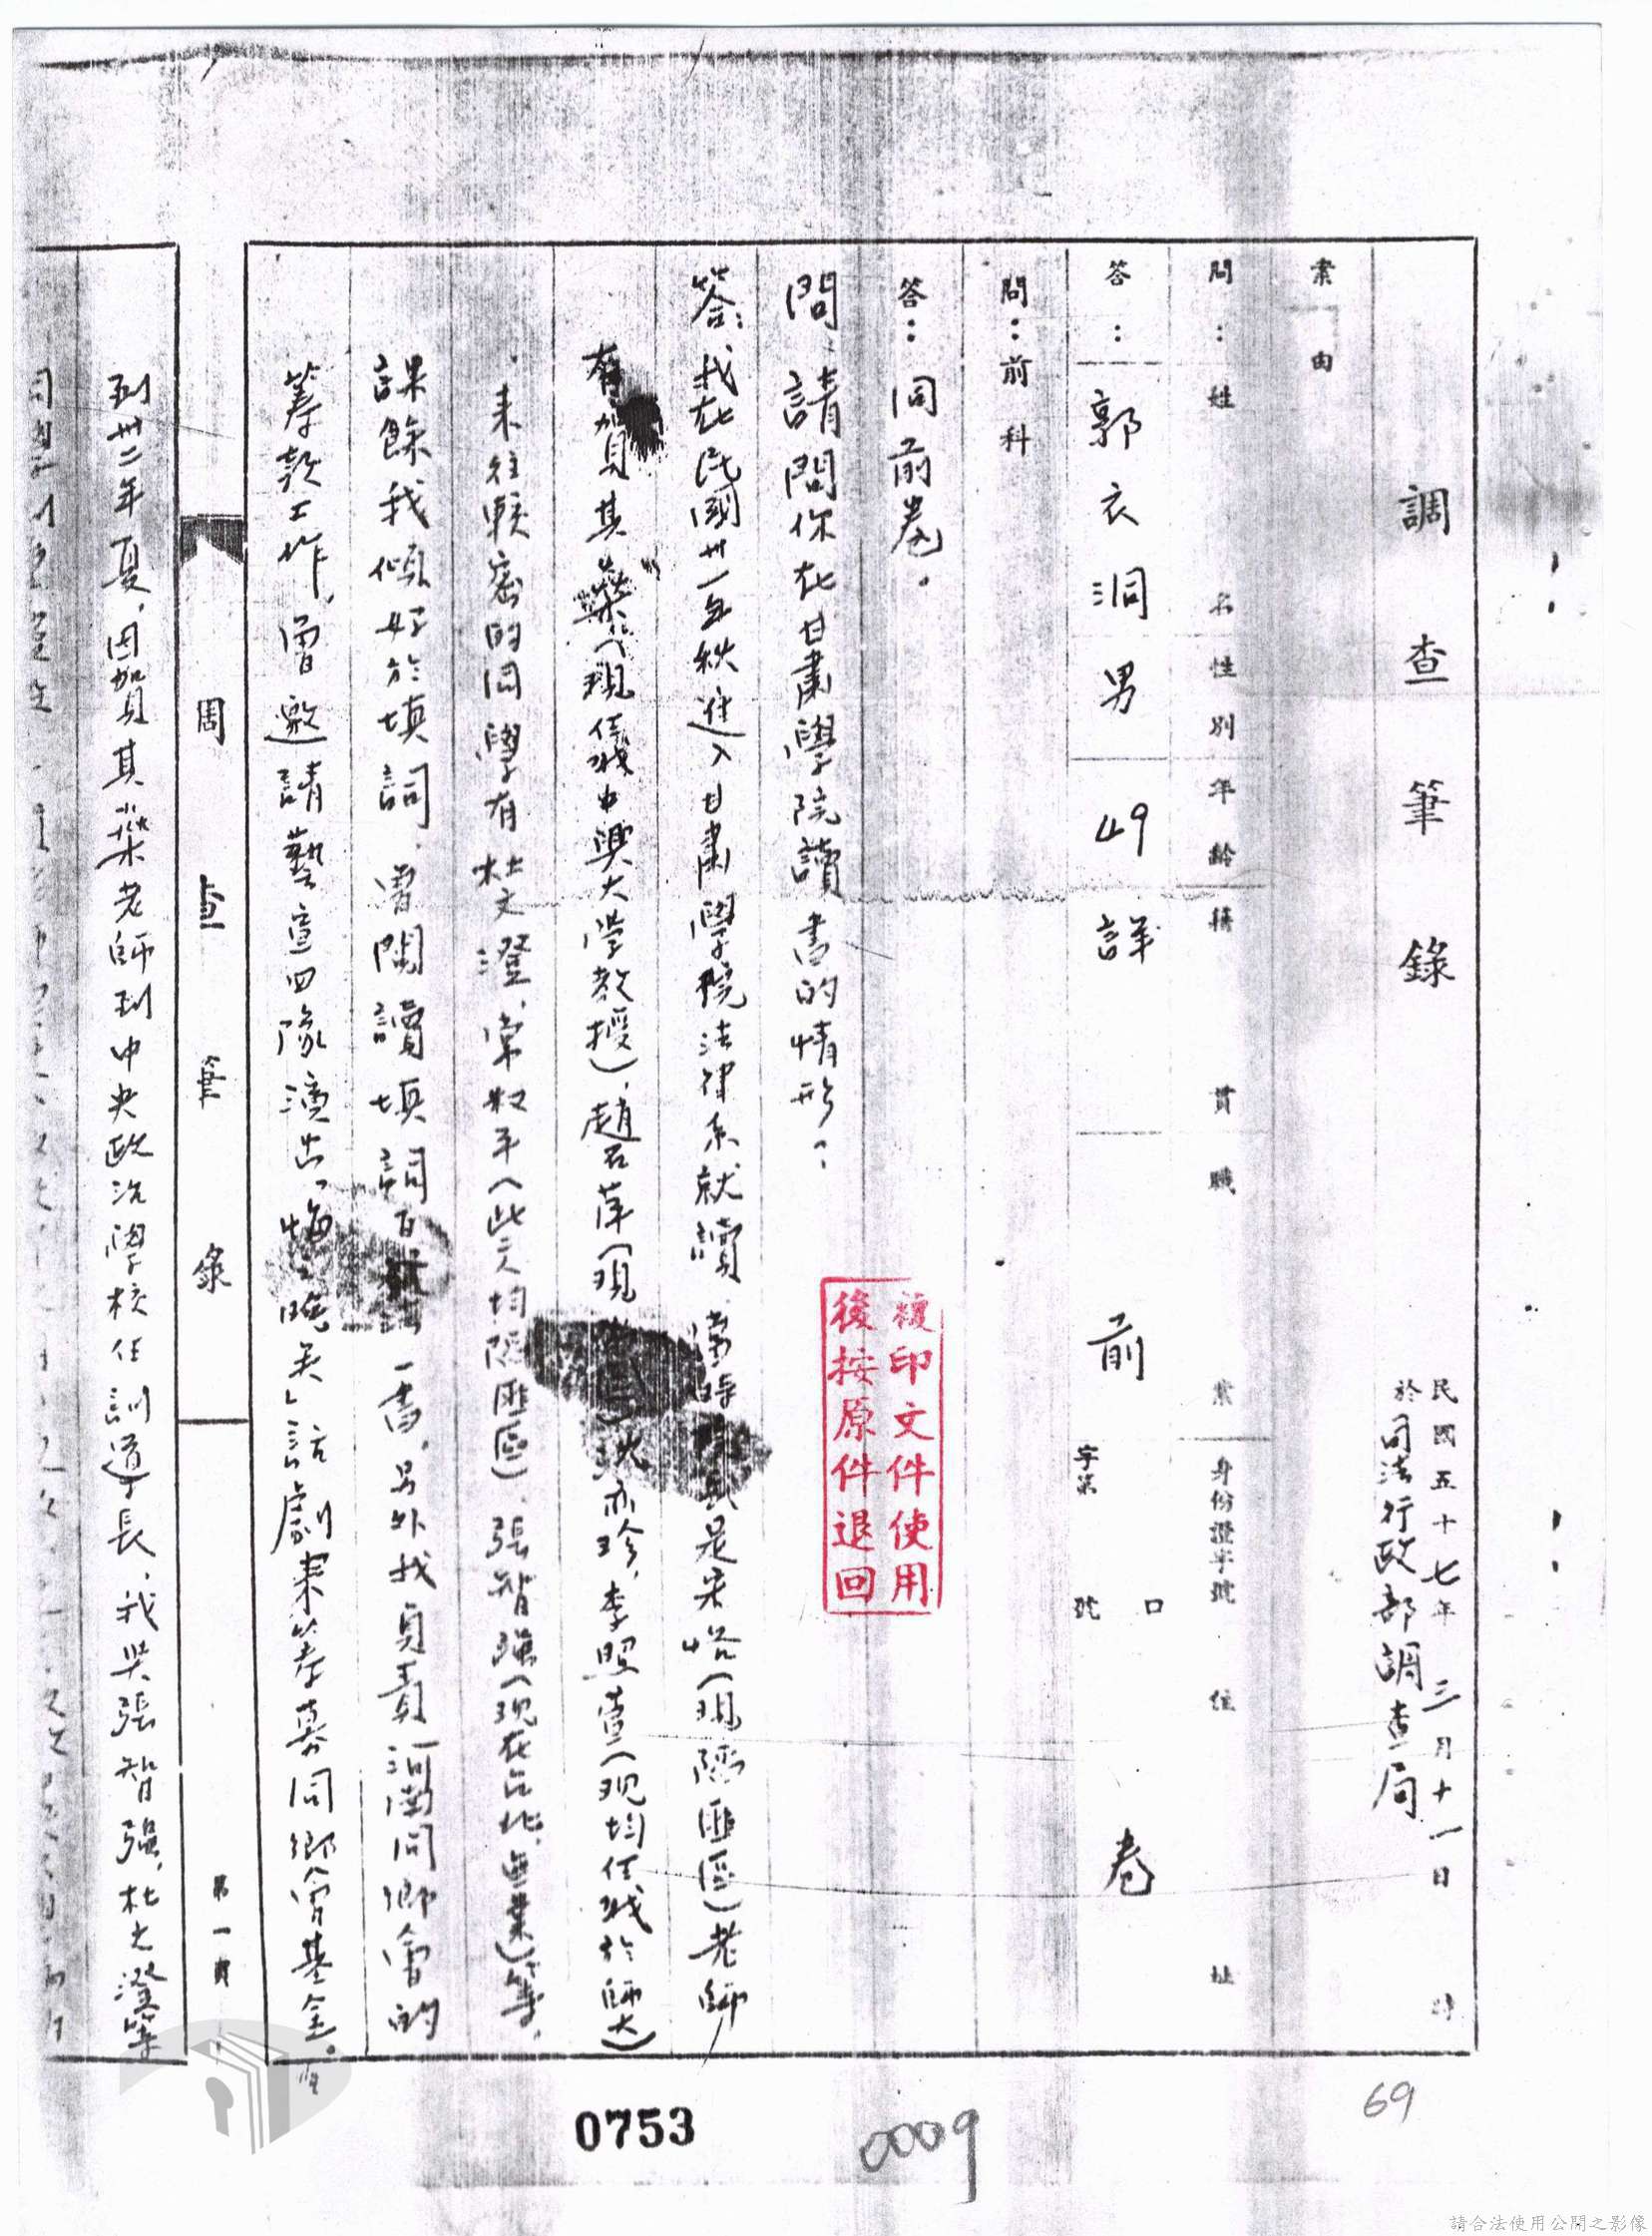 調查筆錄
民國五十七年三月十一日 時
於司法行政部調查局
案由
問：姓名性別年齡籍貫職業身份證字號住址
答：郭衣洞男49詳前卷
字第 號
口
問：前科
答：同前卷。
問：請問你在甘肅學院讀書的情形：
答：我在民國卅一年秋進入甘肅學院法律系就讀，當時 是宋恪（現陷匪區）老師
有賀其燊（現任職中興大學教授），趙石萍（現 ）洪亦珍，李照萱（現均任職於師大）
來往較密的同學有杜文澄，常 平（此二人均陷匪區）張智強（現在台北，無業）等，
課餘我傾好於填詞，曾閱讀填詞百 一書，另外我負責河南同鄉會的
籌款工作，曾邀請藝宣四隊演出「悔之晚矣」話劇來籌募同鄉會基金。
調查筆錄
第一頁
到卅二年夏，因賀其燊老師到中央政治學校任訓導長，我與張智強，杜文澄等
複印文件使用
後按原件退回
0753
0009
69
請合法使用公開之影像